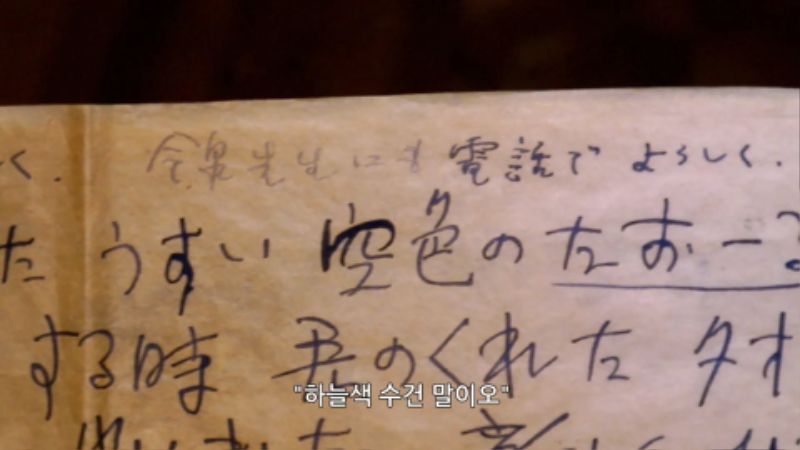 く. 今泉先生にも電話でよろしく.
た うすい 空色の たおーる
する時 君のくれた タオ
"하늘색 수건 말이오"